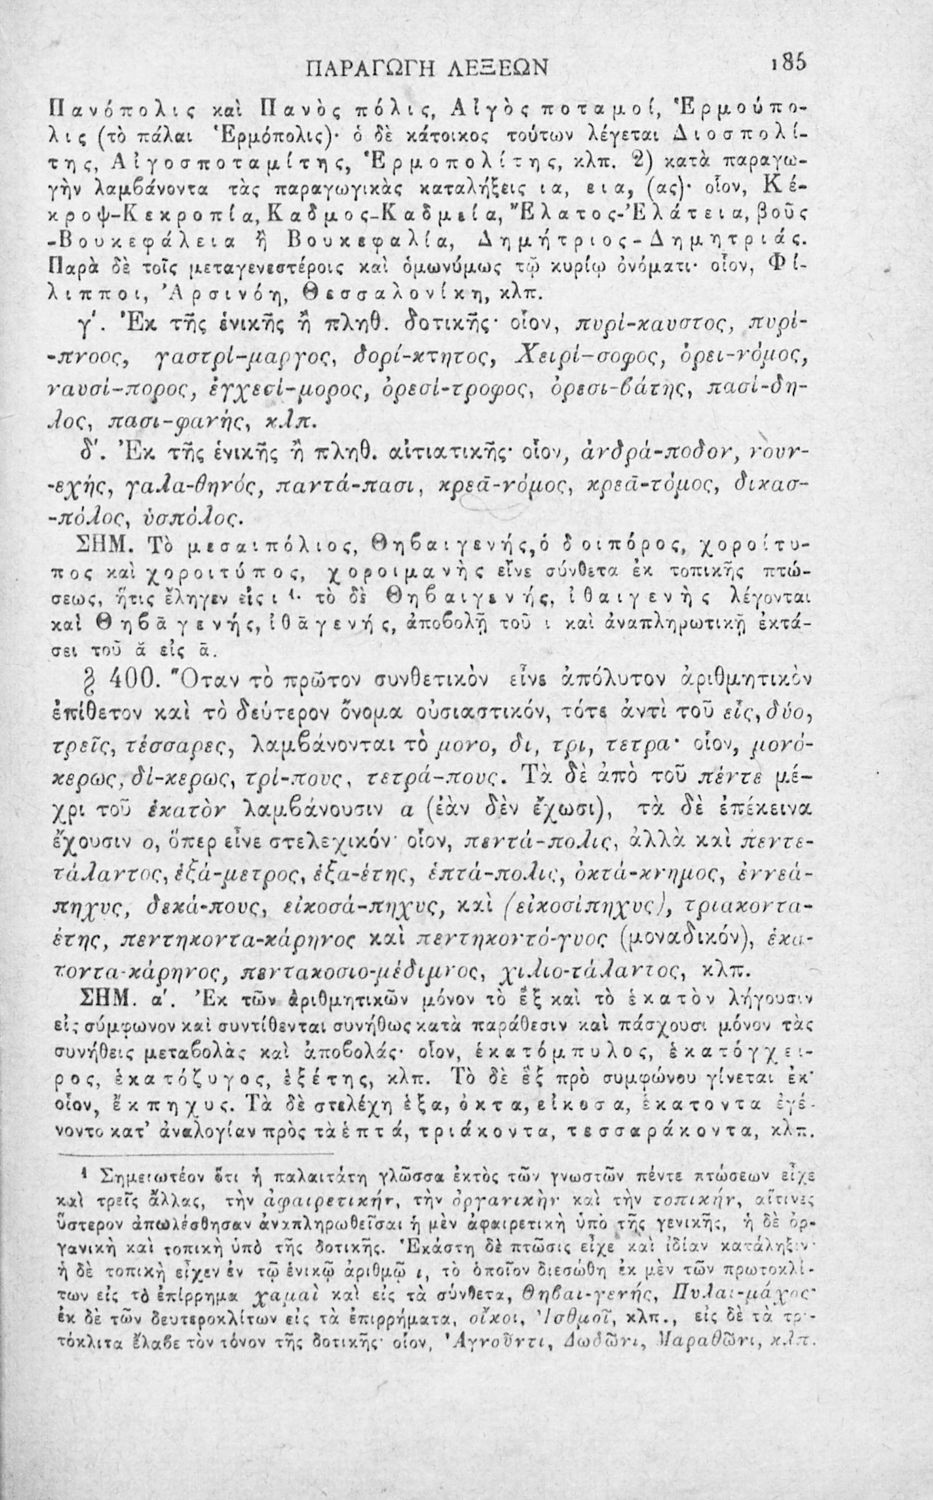 ΠΑΡΑΓΩΓΗ ΛΕΞΕΩΝ 185
Πανόπολις καὶ Πανὸς πόλις, Αἰγὸς ποταμοί, Ἑρμούπο-
λις (τὸ πάλαι Ἑρμόπολις)· ὁ δὲ κάτοικος τούτων λέγεται Διοσπολί-
της, Αἰγοσποταμίτης, Ἑρμοπολίτης, κλπ. 2) κατὰ παραγω-
γὴν λαμβάνοντα τὰς παραγωγικὰς καταλήξεις ια, εια, (ας)· οἷον, Κέ-
κροψ-Κεκροπία, Καδμος-Καδμεία, Ἔλατος-Ἐλάτεια, βοῦς
-Βουκεφάλεια ἢ Βουκεφαλία, Δημήτριος-Δημητριάς.
Παρὰ δὲ τοῖς μεταγενεστέροις καὶ ὁμωνύμως τῷ κυρίῳ ὀνόματι· οἷον, Φί-
λιπποι, Ἀρσινόη, Θεσσαλονίκη, κλπ.
γ΄. Ἐκ τῆς ἑνικῆς ἢ πληθ. δοτικῆς· οἷον, πυρί-καυστος, πυρί-
-πνοος, γαστρί-μαργος, δορί-κτητος, Χειρί-σοφος, ὀρει-νόμος,
ναυσί-πορος, ἐγχεσί-μορος, ὀρεσί-τροφος, ὀρεσι-βάτης, πασί-δη-
λος, πασι-φανής, κλπ.
δ΄. Ἐκ τῆς ἑνικῆς ἢ πληθ. αἰτιατικῆς· οἷον, ἀνδρά-ποδον, νουν-
-εχής, γαλα-θηνός, παντά-πασι, κρεᾱ-νόμος, κρεᾱ-τόμος, δικασ-
-πόλος, ὑσπόλος.
ΣΗΜ. Τὸ μεσαιπόλιος, Θηβαιγενής, ὁδοιπόρος, χοροίτυ-
πος καὶ χοροιτύπος, χοροιμανὴς εἶνε σύνθετα ἐκ τοπικῆς πτώ-
σεως, ἥτις ἔληγεν εἰς ι ¹· τὸ δὲ Θηβαιγενής, ἰθαιγενὴς λέγονται
καὶ Θηβᾱγενής, ἰθᾱγενής, ἀποβολῇ τοῦ ι καὶ ἀναπληρωτικῇ ἐκτά-
σει τοῦ ᾰ εἰς ᾱ.
§ 400. Ὅταν τὸ πρῶτον συνθετικὸν εἶνε ἀπόλυτον ἀριθμητικὸν
ἐπίθετον καὶ τὸ δεύτερον ὄνομα οὐσιαστικόν, τότε ἀντὶ τοῦ εἷς, δύο,
τρεῖς, τέσσαρες, λαμβάνονται τὸ μονο, δι, τρι, τετρα· οἷον, μονό-
κερως, δί-κερως, τρί-πους, τετρά-πους. Τὰ δὲ ἀπὸ τοῦ πέντε μέ-
χρι τοῦ ἑκατὸν λαμβάνουσιν α (ἐὰν δὲν ἔχωσι), τὰ δὲ ἐπέκεινα
ἔχουσιν ο, ὅπερ εἶνε στελεχικόν· οἷον, πεντά-πολις, ἀλλὰ καὶ πεντε-
τάλαντος, ἑξά-μετρος, ἑξα-έτης, ἑπτά-πολις, ὀκτά-κνημος, ἐννεά-
πηχυς, δεκά-πους, εἰκοσά-πηχυς, καὶ (εἰκοσίπηχυς), τριακοντα-
έτης, πεντηκοντα-κάρηνος καὶ πεντηκοντό-γυος (μοναδικόν), ἑκα-
τοντα-κάρηνος, πεντακοσιο-μέδιμνος, χιλιο-τάλαντος, κλπ.
ΣΗΜ. α΄. Ἐκ τῶν ἀριθμητικῶν μόνον τὸ ἓξ καὶ τὸ ἑκατὸν λήγουσιν
εἰς σύμφωνον καὶ συντίθενται συνήθως κατὰ παράθεσιν καὶ πάσχουσι μόνον τὰς
συνήθεις μεταβολὰς καὶ ἀποβολάς· οἷον, ἑκατόμπυλος, ἑκατόγχει-
ρος, ἑκατόζυγος, ἑξέτης, κλπ. Τὸ δὲ ἓξ πρὸ συμφώνου γίνεται ἐκ·
οἷον, ἔκπηχυς. Τὰ δὲ στελέχη ἑξα, ὀκτα, εἰκοσα, ἑκατοντα ἐγέ-
νοντο κατ' ἀναλογίαν πρὸς τὰ ἑπτά, τριάκοντα, τεσσαράκοντα, κλπ.
¹ Σημειωτέον ὅτι ἡ παλαιτάτη γλῶσσα ἐκτὸς τῶν γνωστῶν πέντε πτώσεων εἶχε
καὶ τρεῖς ἄλλας, τὴν ἀφαιρετικήν, τὴν ὀργανικὴν καὶ τὴν τοπικήν, αἵτινες
ὕστερον ἀπωλέσθησαν ἀναπληρωθεῖσαι ἡ μὲν ἀφαιρετικὴ ὑπὸ τῆς γενικῆς, ἡ δὲ ὀρ-
γανικὴ καὶ τοπικὴ ὑπὸ τῆς δοτικῆς. Ἑκάστη δὲ πτῶσις εἶχε καὶ ἰδίαν κατάληξιν·
ἡ δὲ τοπικὴ εἶχεν ἐν τῷ ἑνικῷ ἀριθμῷ ι, τὸ ὁποῖον διεσώθη ἐκ μὲν τῶν πρωτοκλί-
των εἰς τὸ ἐπίρρημα χαμαὶ καὶ εἰς τὰ σύνθετα, Θηβαι-γενής, Πυλαι-μάχος·
ἐκ δὲ τῶν δευτεροκλίτων εἰς τὰ ἐπιρρήματα, οἴκοι, Ἰσθμοῖ, κλπ., εἰς δὲ τὰ τρι-
τόκλιτα ἔλαβε τὸν τόνον τῆς δοτικῆς· οἷον, Ἀγνοῦντι, Δωδῶνι, Μαραθῶνι, κλπ.